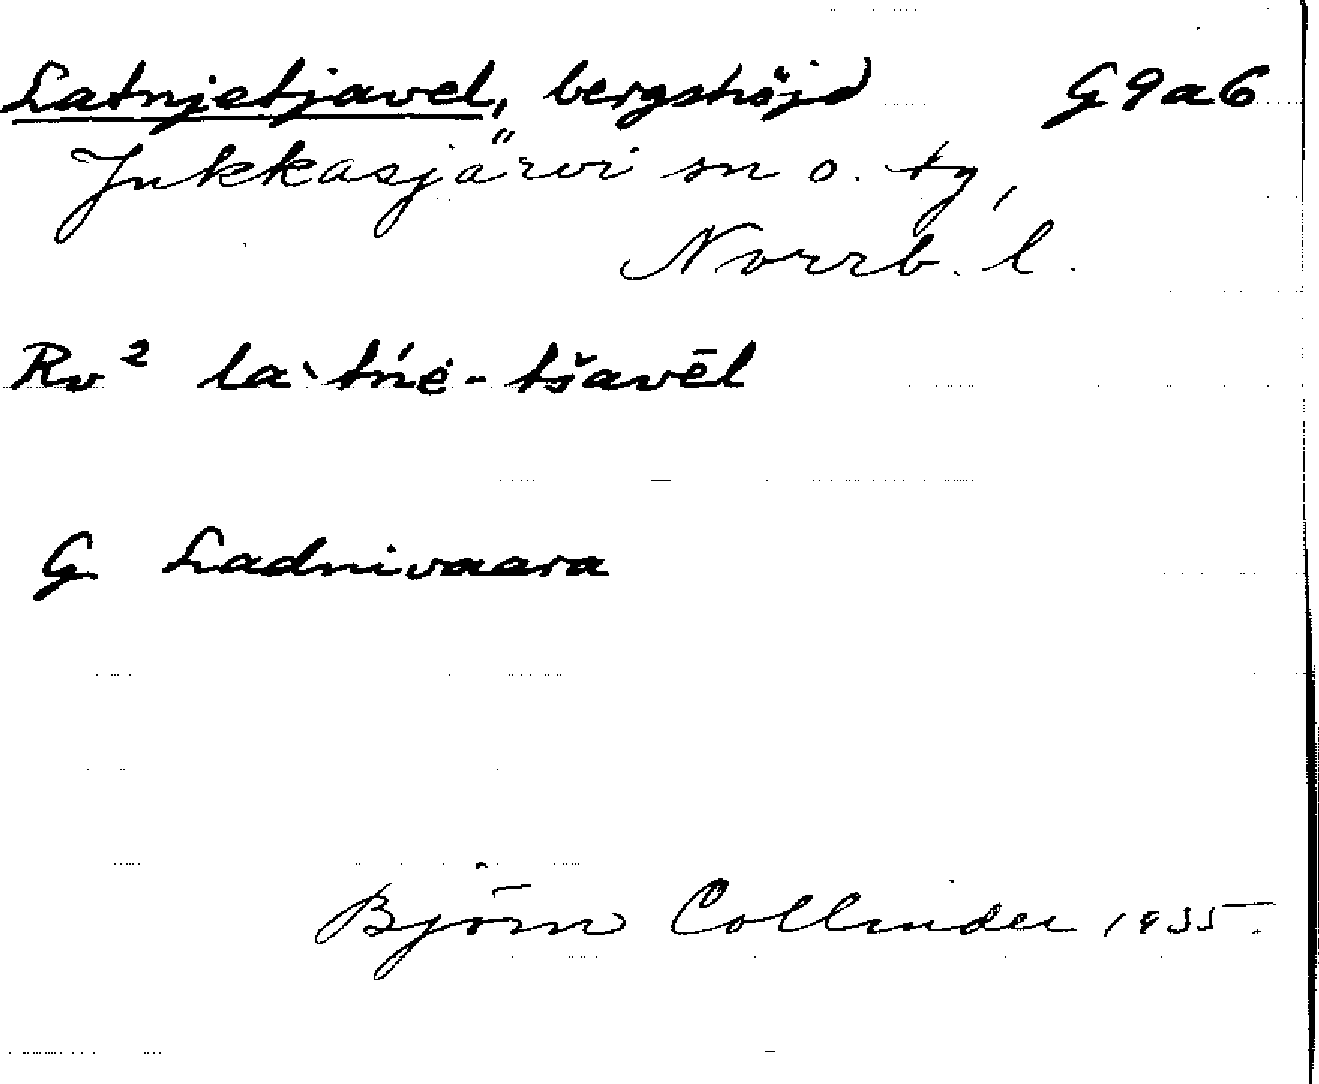 Latnjetjavel, bergshöjd G9a6
Jukkasjärvi sn o. tg,
Norrb. l.
Rv² la`tńė-tšavēl
G Ladnivaara
Björn Collinder 1935.